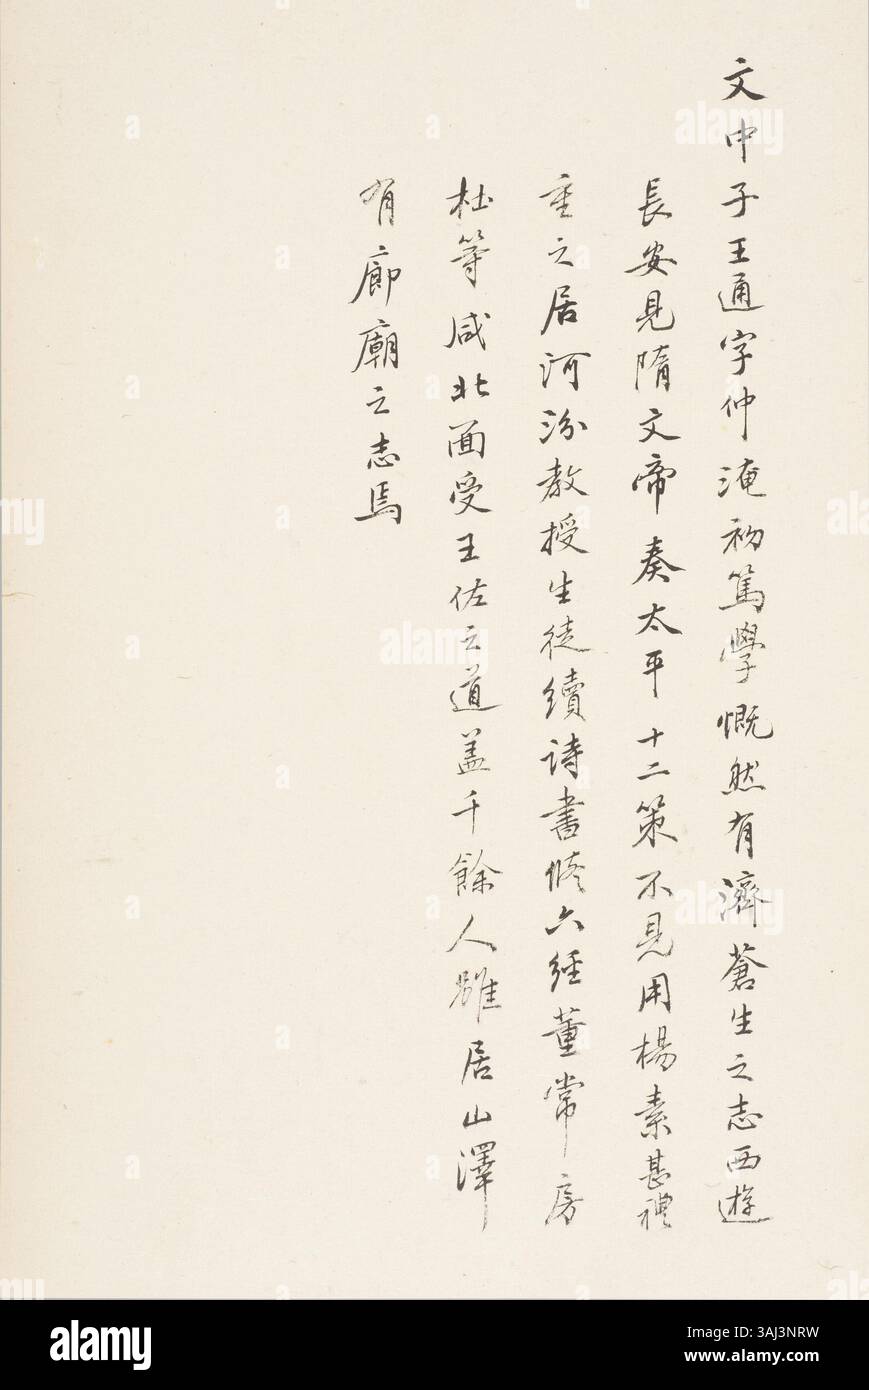 文中子王通字仲淹初篤學慨然有濟蒼生之志西遊
長安見隋文帝奏太平十二策不見用楊素甚禮
重之居河汾教授生徒續詩書修六經董常房
杜等咸北面受王佐之道盖千餘人雖居山澤
有廊廟之志焉
alamy
Image ID: 3AJ3NRW
www.alamy.com